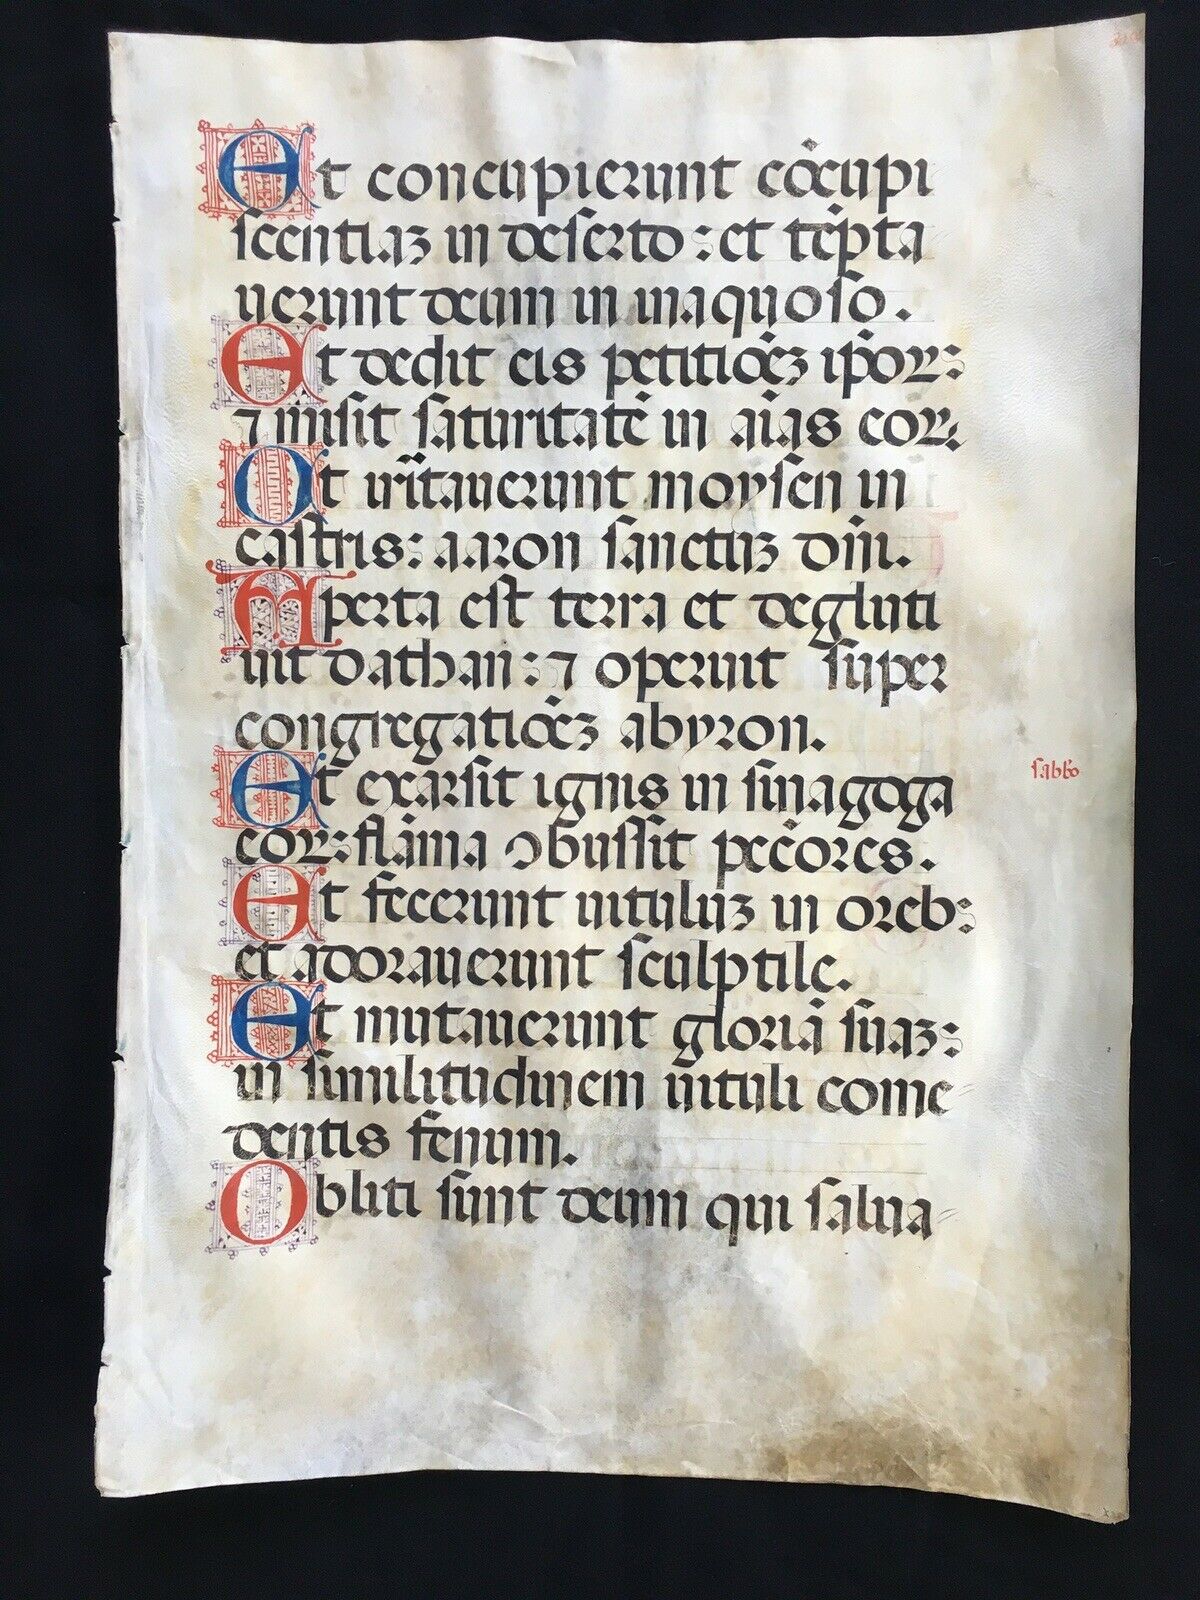 Et concupierunt cōcupi
scentiaʒ in deserto: et tēpta
uerunt deum in inaquoso.
Et dedit eis petitiōeʒ ipōꝝ:
⁊ misit saturitatē in aīas eoꝝ.
Et irritauerunt moysen in
castris: aaron sanctuʒ dn̄i.
Aperta est terra et degluti
uit dathan: ⁊ operuit super
congregatiōeʒ abyron.
Et exarsit ignis in sinagoga
eoꝝ: flāma ↄbussit pēcores.
Et fecerunt uituluʒ in oreb:
et adorauerunt sculptile.
Et mutauerunt gloriā suaʒ:
in similitudinem uituli come
dentis fenum.
Obliti sunt deum qui salua
sabb̄o